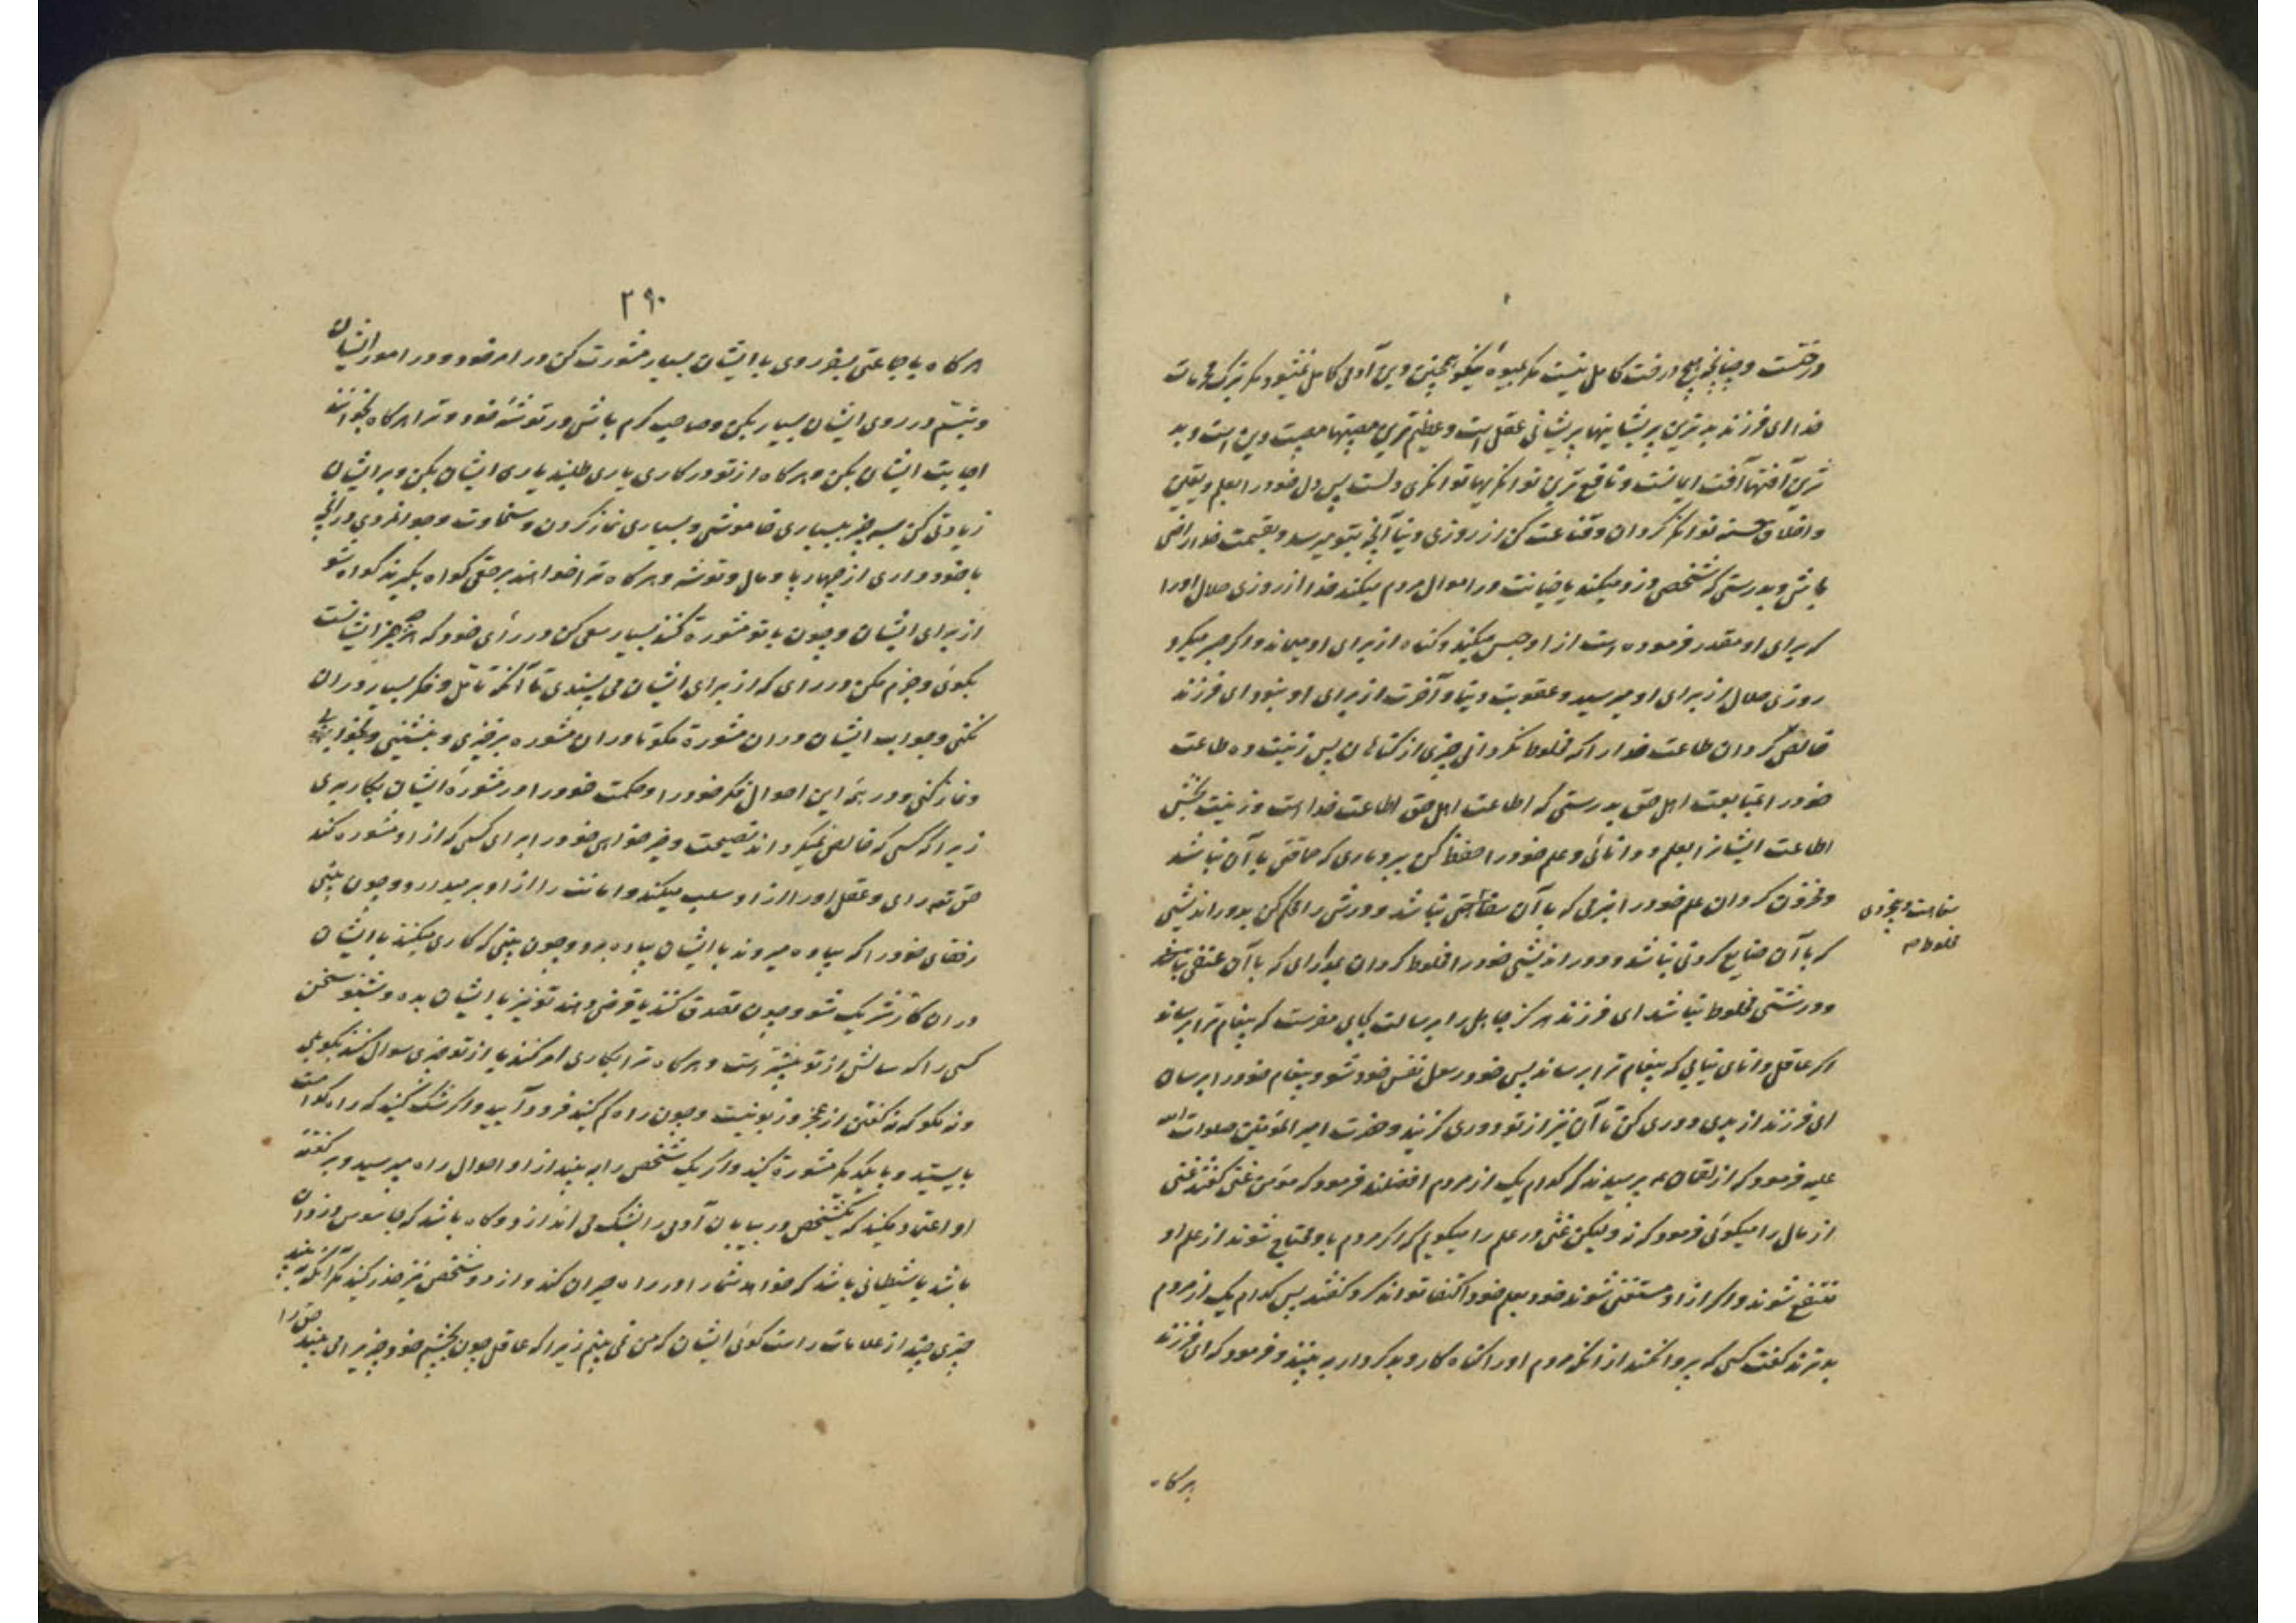 درختست و چنانچه هیچ درخت کامل نیست مکر بمیوه نیکو همچنین دین آدمی کامل نمیشود مکر بترک محرمات
خدا ای فرزند بدترین پریشانیها پریشانی عقل است و عظیم ترین مصیبتها مصیبت دین است و بد
ترین آفتها آفت ایمانست و نافع ترین توانکریها توانکری دلست پس دل خود را بعلم و یقین
و اخلاق حسنه توانکر کردان و قناعت کن از روزی دنیا آنچه بتو میرسد و بقسمت خدا راضی
باش و بدرستی که شخصی دزدی میکند یا خیانت در اموال مردم میکند خدا از روزی حلال او را
که برای او مقدر فرموده است از او حبس میکند و کناه از برای او میماند و اکر صبر میکرد
روزی حلال از برای او میرسید و عقوبت دنیا و آخرت از برای او نبود ای فرزند
خالص کردان طاعت خدا را که مخلوط نکردانی چیزی از کناهان پس زینت ده طاعت
خود را بمتابعت اهل حق بدرستی که اطاعت اهل حق اطاعت خدا است و زینت بخش
اطاعت ایشانرا بعلم و دانائی و علم خود را حفظ کن ببردباری که حماقتی با آن نباشد
و مخزون کردان علم خود را بنرمی که با آن سفاهتی نباشد و درش را محکم کن بدوراندیشی
که با آن ضایع کردنی نباشد و دوراندیشی خود را مخلوط کردان بمدارای که با آن عنفی نباشد
سفاهت و بیخردی
مخلوط صه
و درشتی مخلوط نباشد ای فرزند هرکز جاهل را برسالت بجایی مفرست که پیغام ترا برساند
اکر عاقل دانای نیابی که پیغام ترا برساند پس خود رسول نفس خود شو و پیغام خود را برسان
ای فرزند از بدی دوری کن تا آن نیز از تو دوری کزیند و حضرت امیر المؤمنین صلوات الله
علیه فرمود که از لقمان پرسیدند که کدام یک از مردم افضلند فرمود که مؤمن غنی کفتند غنی
از مال را میکوئی فرمود که نه ولیکن غنی در علم را میکویم که اکر مردم باو محتاج شوند از علم او
منتفع شوند و اکر از او مستغنی شوند خود بعلم خود اکتفا تواند کرد کفتند پس کدام یک از مردم
بدترند کفت کسی که پروا نکند از انکه مردم او را کناه کار و بدکردار ببینند و فرمود که ای فرزند
هرکاه
۲۹۰
هرکاه با جماعتی بسفر روی با ایشان بسیار مشورت کن در امر خود و در امور ایشان
و تبسّم در روی ایشان بسیار بکن و صاحب کرم باش در توشهٔ خود و ترا هرکاه بخوانند
اجابت ایشان بکن و هرکاه از تو در کاری یاری طلبند یاری ایشان بکن و بر ایشان
زیادتی کن بسه چیز ببسیاری خاموشی و بسیاری نماز کردن و سخاوت و جوانمردی در آنچه
با خود داری از چهارپا و مال و توشه و هرکاه ترا خواهند بر حقی کواه بکیرند کواه شو
از برای ایشان و چون با تو مشورة کنند بسیار سعی کن در رأی خود که هرچه خیر ایشانست
بکوئی و جزم مکن در رای که از برای ایشان می پسندی تا آنکه تامّل و فکر بسیار در ان
نکنی و جواب ایشان در ان مشورة مکو تا در ان مشوره برخیزی و بنشینی و بخوابی
و نماز کنی و در همه این احوال فکر خود را و حکمت خود را در مشورهٔ ایشان بکار بری
زیرا که کسی که خالص نمیکرداند نصیحت و خیر خواهی خود را برای کسی که از او مشوره کند
حق تعه رای و عقل او را از او سلب میکند و امانت را از او برمیدارد و چون بینی
رفقای خود را که پیاده میروند با ایشان پیاده برو و چون بینی که کاری میکنند با ایشان
در ان کار شریک شو و چون تصدق کنند یا قرض دهند تو نیز با ایشان بده و بشنو سخن
کسی را که سالش از تو بیشتر است و هرکاه ترا بکاری امر کنند یا از تو چیزی سوال کنند بکو بلی
و نه مکو که نه کفتن از عجز و زبونیست و چون راه کم کنید فرود آیید و اکر شک کنید که راه کدامست
بایستید و با یکدیکر مشورة کنید و اکر یک شخص را به بینید از او احوال راه مپرسید و بر کفته
او اعتماد مکنید که یکشخص در بیابان آدمی را بشک می اندازد و کاه باشد که جاسوس دزدان
باشد یا شیطانی باشد که خواهد شما را در راه حیران کند و از دو شخص نیز حذر کنید مکر آنکه به بینید
چیزی چند از علامات راست کوئی ایشان که من نمی بینم زیرا که عاقل چون بچشم خود چیزیرا می بیند حق را